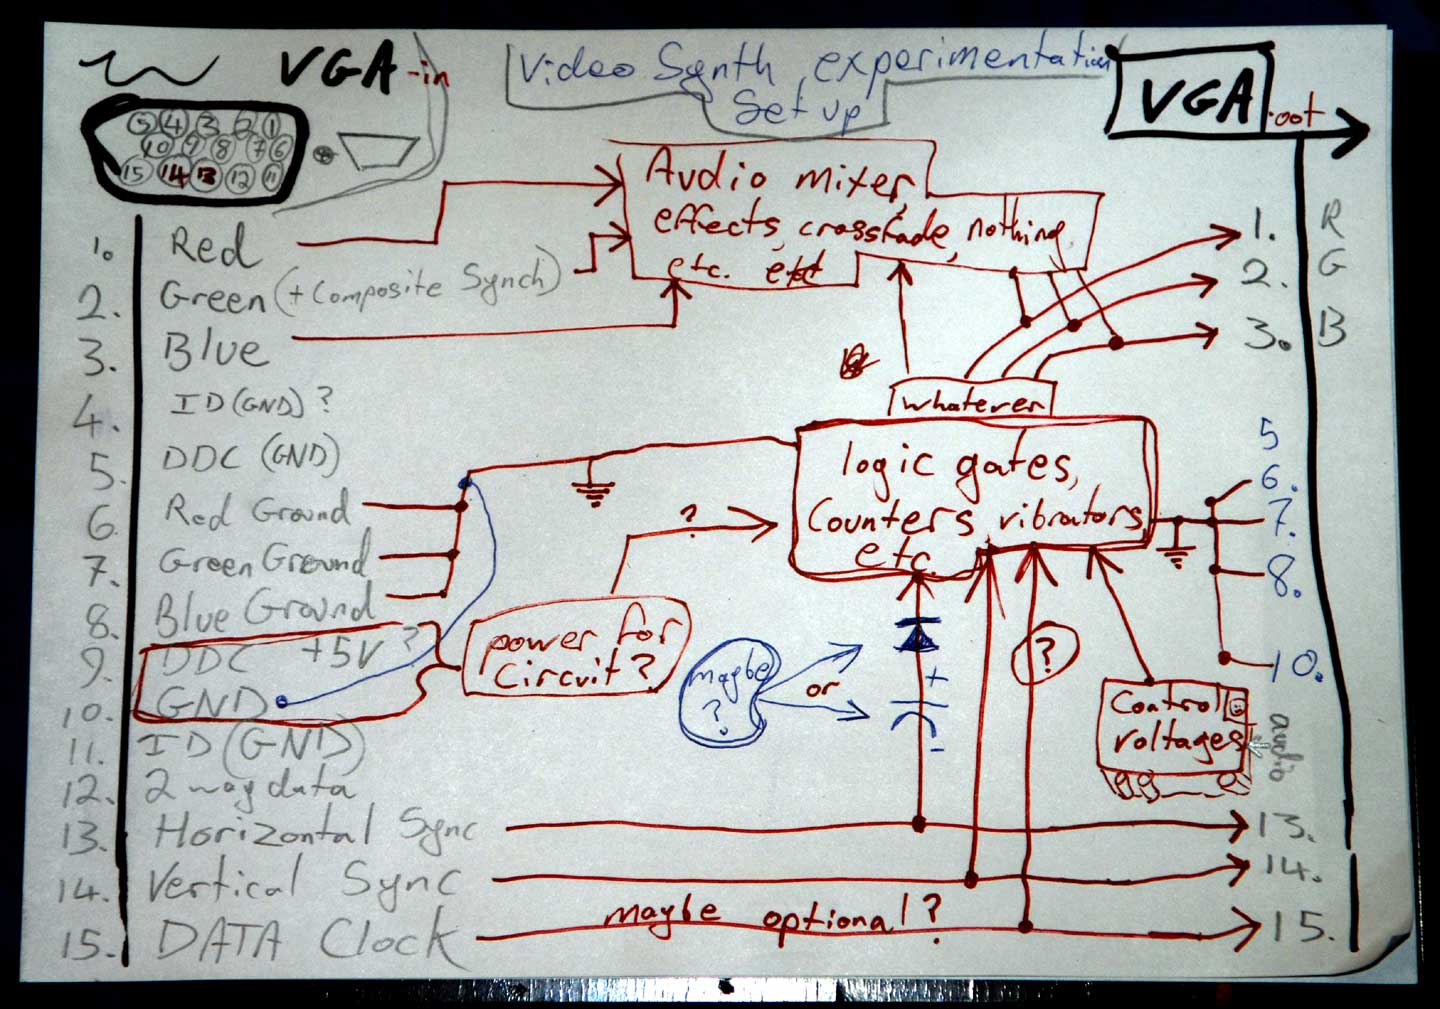 VGA -in
Video Synth experimentation
Set up
VGA -oot
5 4 3 2 1
10 9 8 7 6
15 14 13 12 11
Audio mixer,
effects, crossfade, nothing,
etc. etc
1. Red
2. Green (+ Composite Synch)
3. Blue
4. ID (GND) ?
5. DDC (GND)
6. Red Ground
7. Green Ground
8. Blue Ground
9. DDC +5V ?
10. GND
11. ID (GND)
12. 2 way data
13. Horizontal Sync
14. Vertical Sync
15. DATA Clock
1. R
2. G
3. B
whatever
logic gates,
Counters, vibrators,
etc.
?
power for
Circuit?
maybe
?
or
+
-
?
Control
voltages
audio
maybe optional?
5
6.
7.
8.
10.
13.
14.
15.